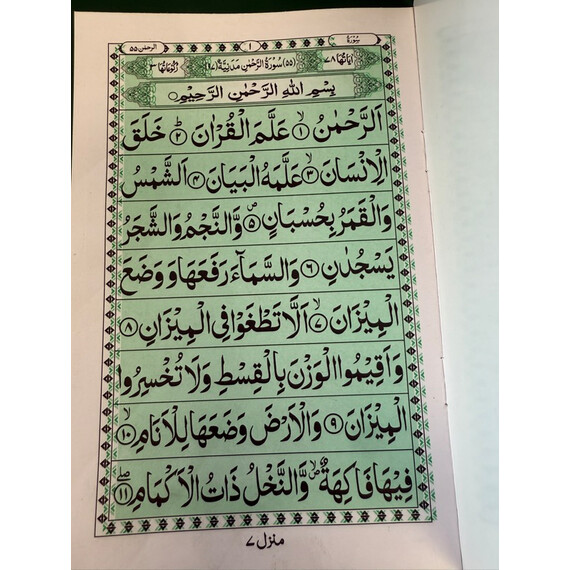 سورة ١ الرحمن ٥٥
اٰيَاتُهَا ٧٨ (٥٥) سُوْرَةُ الرَّحْمٰنِ مَدَنِيَّةٌ (٩٧) رُكُوْعَاتُهَا ٣
بِسْمِ اللّٰهِ الرَّحْمٰنِ الرَّحِيْمِ
اَلرَّحْمٰنُ ۙ﴿١﴾ عَلَّمَ الْقُرْاٰنَ ؕ﴿٢﴾ خَلَقَ
الْاِنْسَانَ ۙ﴿٣﴾ عَلَّمَهُ الْبَيَانَ ﴿٤﴾ اَلشَّمْسُ
وَالْقَمَرُ بِحُسْبَانٍ ۪﴿٥﴾ وَّالنَّجْمُ وَالشَّجَرُ
يَسْجُدٰنِ ﴿٦﴾ وَالسَّمَآءَ رَفَعَهَا وَوَضَعَ
الْمِيْزَانَ ۙ﴿٧﴾ اَلَّا تَطْغَوْا فِي الْمِيْزَانِ ﴿٨﴾
وَاَقِيْمُوا الْوَزْنَ بِالْقِسْطِ وَلَا تُخْسِرُوا
الْمِيْزَانَ ﴿٩﴾ وَالْاَرْضَ وَضَعَهَا لِلْاَنَامِ ۙ﴿١٠﴾
فِيْهَا فَاكِهَةٌ ۪ۙ وَّالنَّخْلُ ذَاتُ الْاَكْمَامِ ۖ﴿١١﴾
منزل ٧